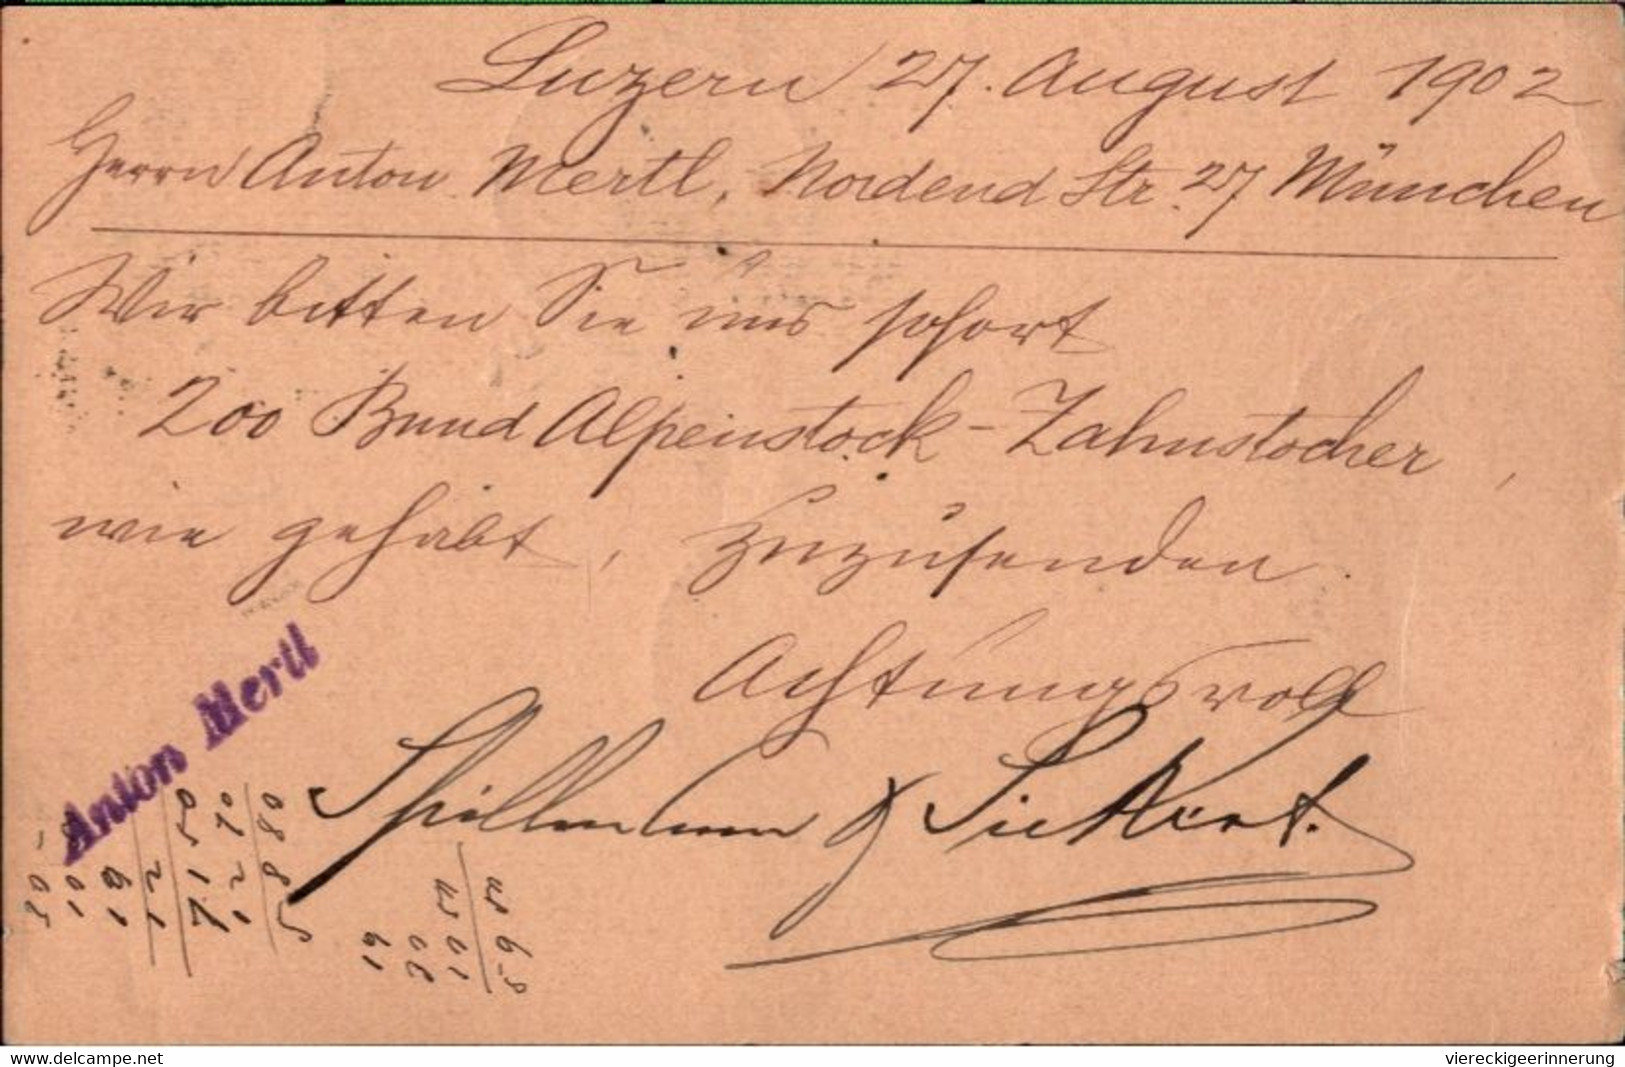 Luzern 27. August 1902
Herrn Anton Mertl, Nordend Str. 27 München
Wir bitten Sie uns sofort
200 Bund Alpenstock-Zahnstocher,
wie gehabt, zuzusenden.
Achtungsvoll
Spillmann & Sickert.
Anton Mertl
www.delcampe.net
viereckigeerinnerung